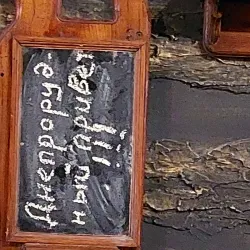 Днепроруд-
ный привет
!!!